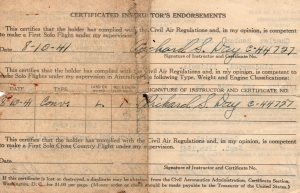 CERTIFICATED INSTRUCTOR'S ENDORSEMENTS
This certifies that the holder has complied with the Civil Air Regulations and, in my opinion, is competent
to make a First Solo Flight under my supervision.
Date 8-10-41 Richard S. Dry C-44797
Signature of Instructor and Certificate No.
This certifies that the holder has complied with the Civil Air Regulations and, in my opinion, is competent
to Solo under my supervision in Aircraft of the following Type, Weight and Engine Classifications:
DATE TYPE SIGNATURE OF INSTRUCTOR AND CERTIFICATE NO.
8-10-41 Conv. L. 1 Richard S. Dry C-44797
This certifies that the holder has complied with the Civil Air Regulations and, in my opinion, is competent
to make a First Solo Cross Country Flight under my supervision.
Date
Signature of Instructor and Certificate No.
If this certificate is lost or destroyed, a duplicate may be obtained from the Civil Aeronautics Administration, Certificate Section,
Washington, D. C., for $1.00 per page. (Money order or check should be made payable to the Treasurer of the United States.)